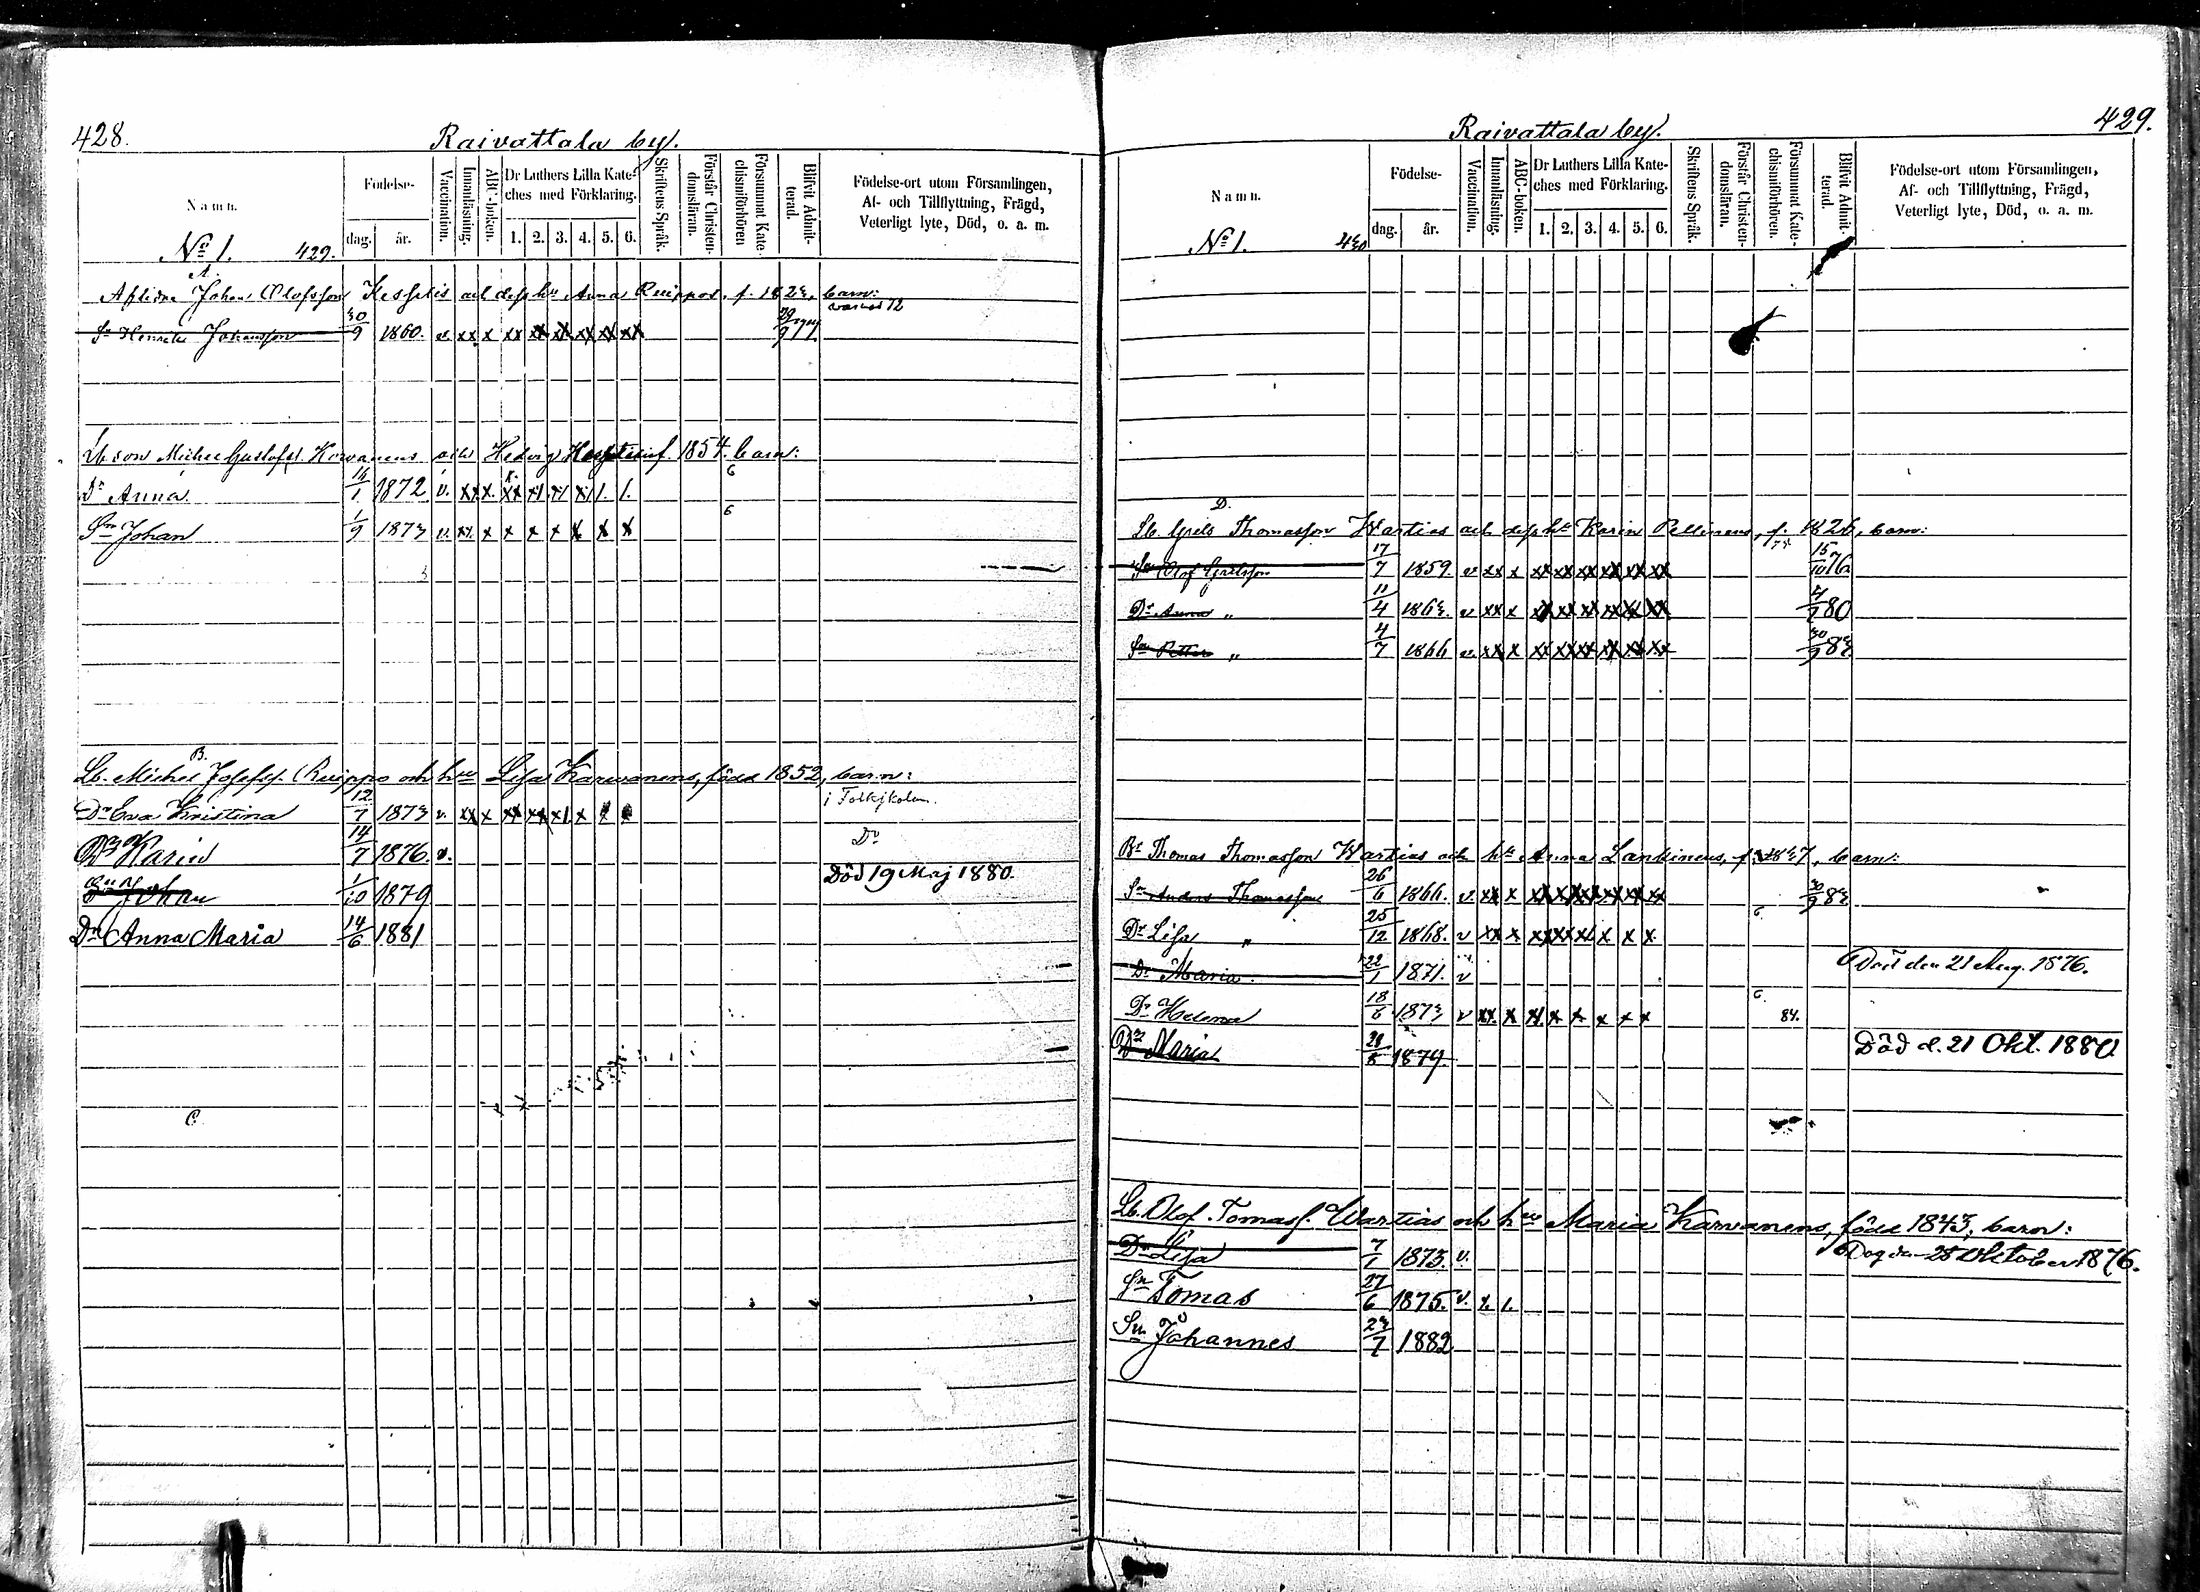 428.
Raivattala by.
Namn.
Födelse-
dag.
år.
Vaccination.
Innanläsning.
ABC-boken.
Dr Luthers Lilla Kate-
ches med Förklaring.
1. 2. 3. 4. 5. 6.
Skriftens Språk.
Förstår Christen-
domsläran.
Försummat Kate-
chismiförhören
Blifvit Admit-
terad.
Födelse-ort utom Församlingen,
Af- och Tillflyttning, Frägd,
Veterligt lyte, Död, o. a. m.
No 1. 429.
A.
Aflidne Johan Olofsson Kesseli och dess hu Anna Ruippo, f. 1823, barn:
Sn Henrik Johansson 30/9 1860. v. xx x xx xx xx xx xx xx 29/9 77
Hedvig f. 1854. barn:
Dr Anna. 1872 v.
Sn Johan 1/9 1873 v. xx x x x x x x x 6
B.
Lb. Michel Josefss. Ruippo och hu Lisa Karvanens, född 1852, barn:
i Folkskolan.
Dr Eva Kristina 12/7 1873 v.
Dr Karin 14/7 1876. v. Do
Sn Johan 1/10 1879 Död 19 Maj 1880.
Dr Anna Maria 14/6 1881
C
429.
Raivattala by.
Namn.
Födelse-
dag.
år.
Vaccination.
Innanläsning.
ABC-boken.
Dr Luthers Lilla Kate-
ches med Förklaring.
1. 2. 3. 4. 5. 6.
Skriftens Språk.
Förstår Christen-
domsläran.
Försummat Kate-
chismiförhören.
Blifvit Admit-
terad.
Födelse-ort utom Församlingen,
Af- och Tillflyttning, Frägd,
Veterligt lyte, Död, o. a. m.
No 1. 430
D.
Lb. Grels Thomasson Wartias och dess hu Karin Pellinens, f. 1826, barn:
Sn Olof Grelsson 17/7 1859. v xx x xx xx xx xx xx xx 15/10 76
Dr Anna " 11/4 1863. v xx x xx xx xx xx xx xx 80
Sn Petter " 4/7 1866 v. xx x xx xx xx xx xx xx 30/9 83
Br Thomas Thomasson Wartias och hu Anna Lankinens, f. 1837, barn:
Sn Anders Thomasson 26/6 1866. v. xx x xx xx xx xx xx xx 30/9 83
Dr Lisa " 25/12 1868. v xx x xx xx xx x x x 6.
Dr Maria. 22/1 1871. v Död den 21 Aug. 1876.
Dr Helena 18/6 1873 v xx x xx x x x x x 6. 84.
Dr Maria 28/8 1879. Död d. 21 Okt. 1880
Lb. Olof Tomass. Wartias och hu Maria Karvanens, född 1843; barn:
Dr Lisa 7/1 1873. v. Dog den 28 Oktober 1876.
Sn Tomas 27/6 1875. v. x. 1.
Sn Johannes 23/7 1882